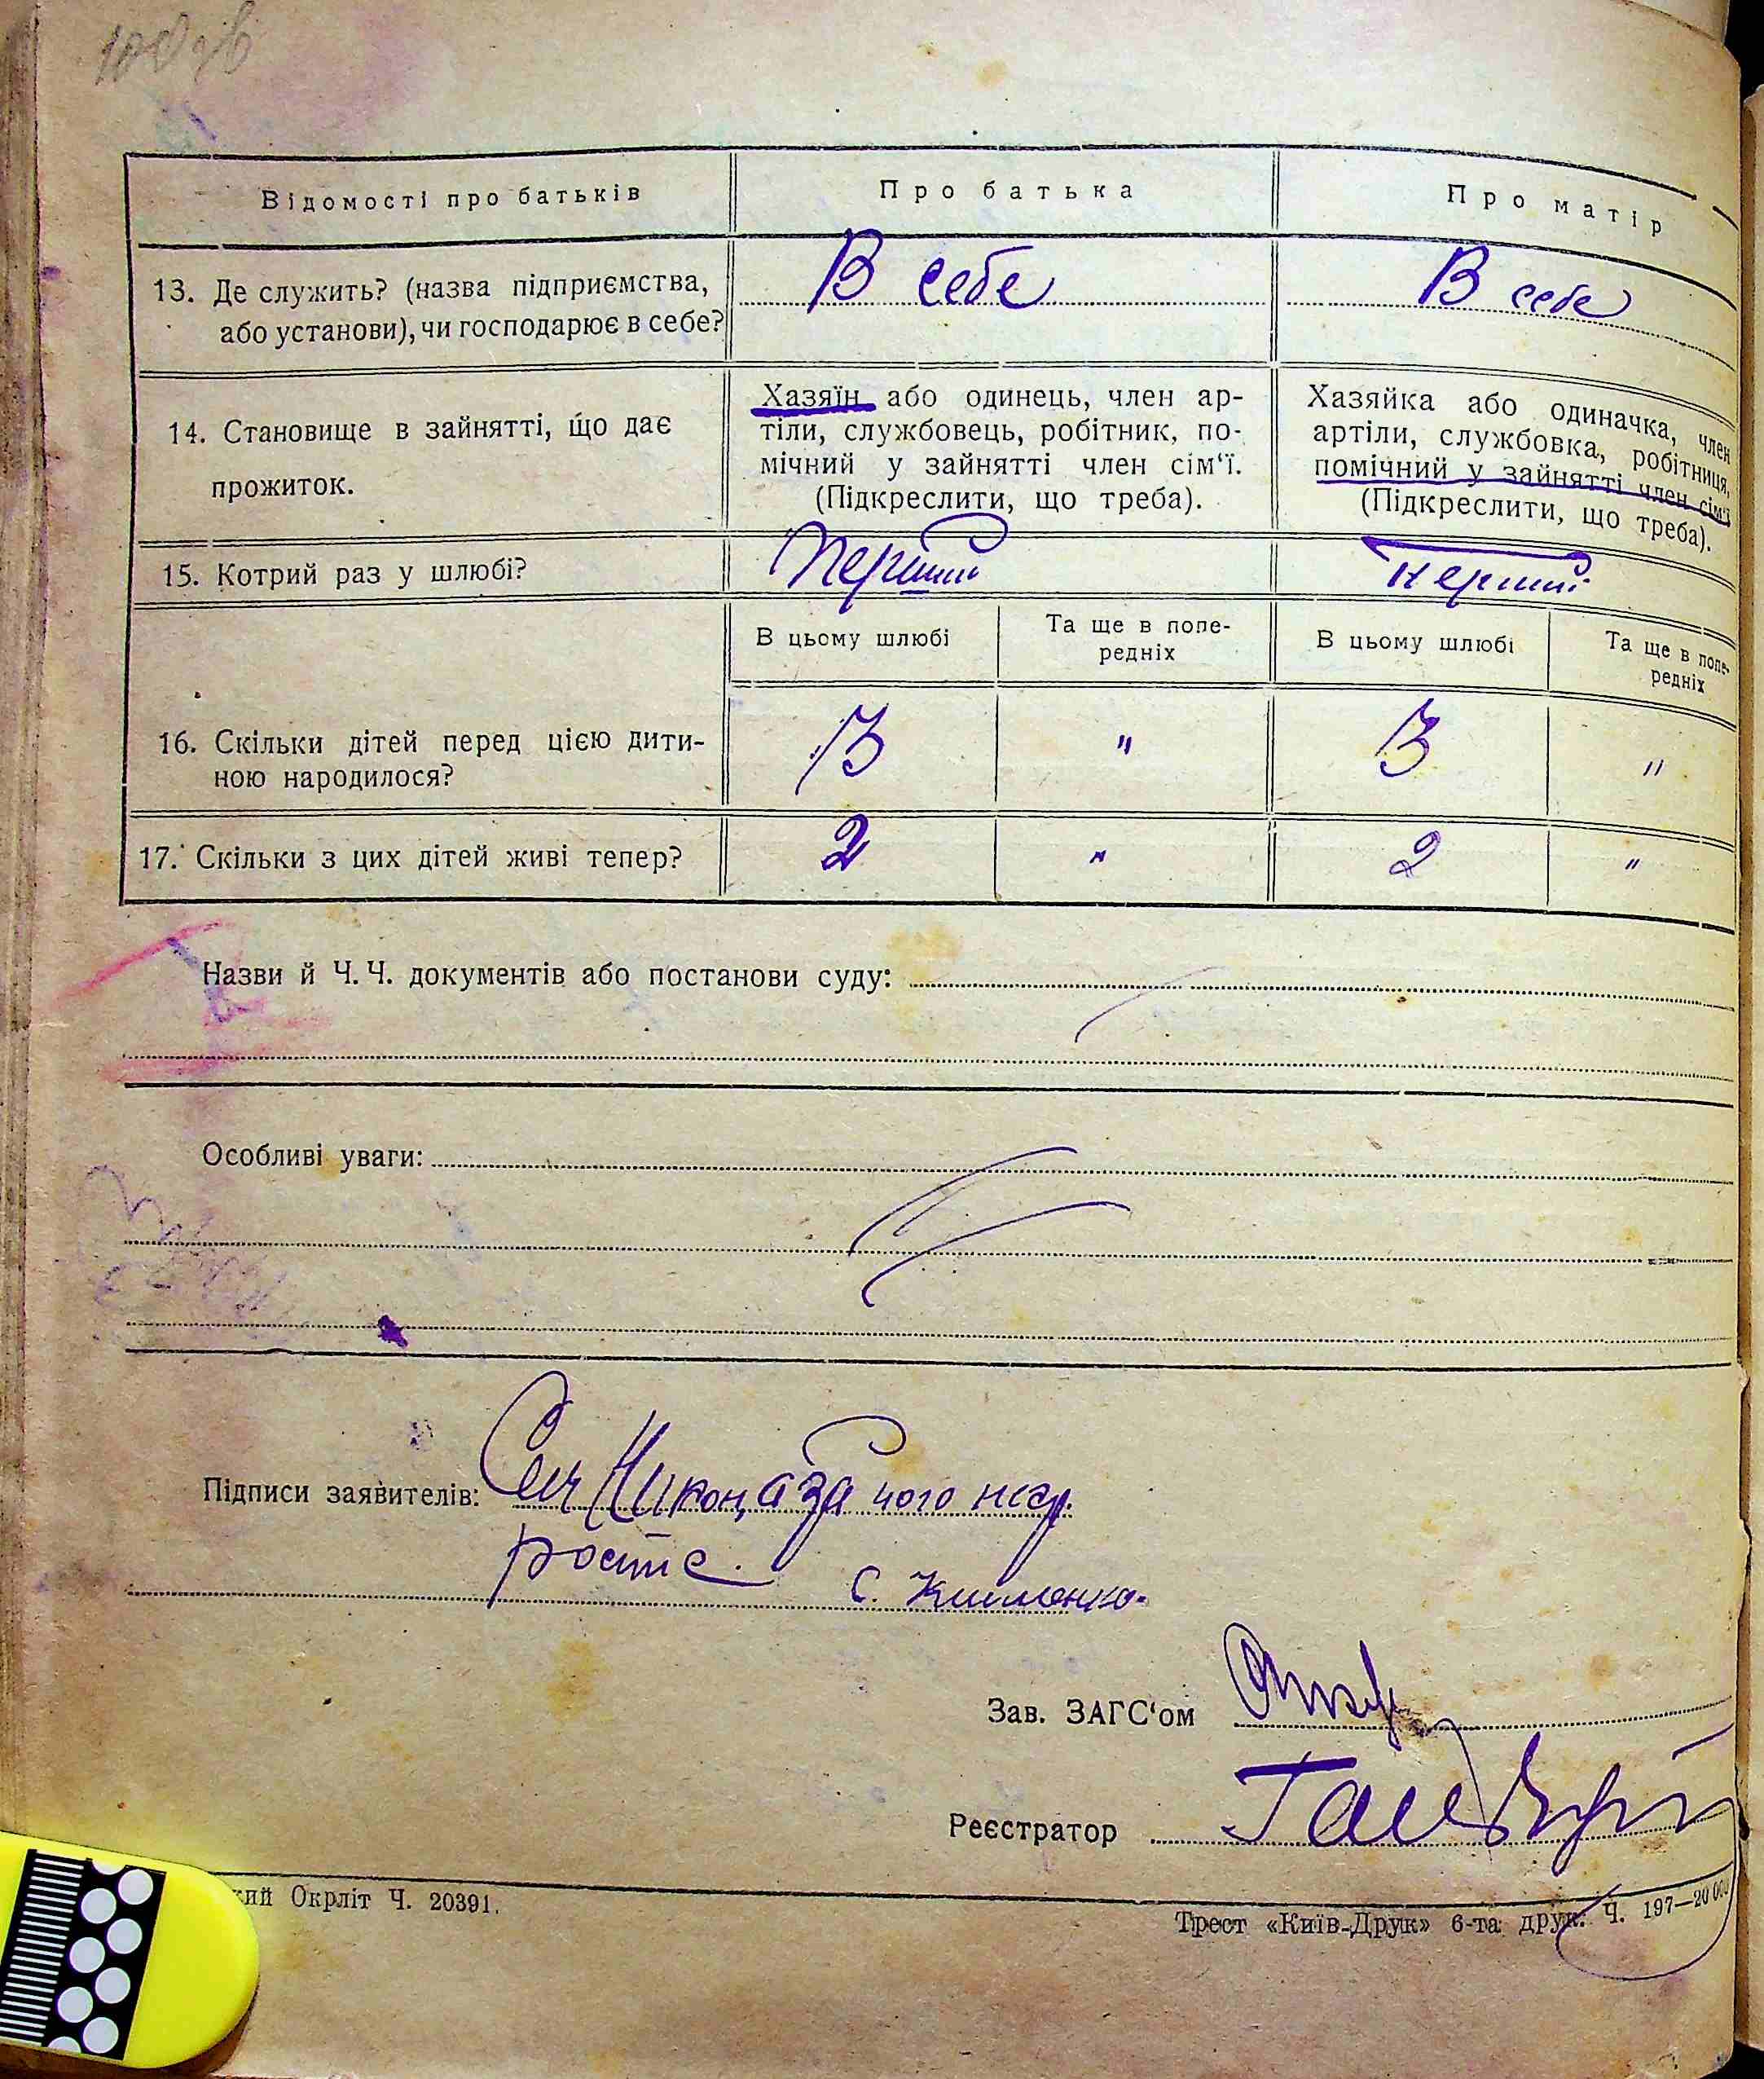 Відомості про батьків
Про батька
Про матір
13. Де служить? (назва підприємства,
або установи), чи господарює в себе?
В себе
В себе
14. Становище в зайнятті, що дає
прожиток.
Хазяїн або одинець, член ар-
тіли, службовець, робітник, по-
мічний у зайнятті член сім'ї.
(Підкреслити, що треба).
Хазяйка або одиначка, член
артіли, службовка, робітниця,
помічний у зайнятті член сім'ї
(Підкреслити, що треба).
15. Котрий раз у шлюбі?
Перший
Перший
В цьому шлюбі
Та ще в попе-
редніх
В цьому шлюбі
Та ще в попе-
редніх
16. Скільки дітей перед цією дити-
ною народилося?
3
"
3
"
17. Скільки з цих дітей живі тепер?
2
"
2
"
Назви й Ч. Ч. документів або постанови суду:
Особливі уваги:
Підписи заявителів:
чого
С. Клименко.
Зав. ЗАГС'ом
Реєстратор
кий Окрліт Ч. 20391.
Трест «Київ-Друк» 6-та друк. Ч. 197—20 000